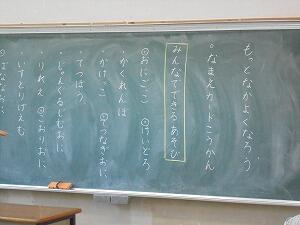 もっとなかよくなろう
。なまえカードこうかん
みんなでできるあそび
◎おにごっこ ◎けいどろ
・かくれんぼ
・かけっこ ◎てつなぎおに
・てつぼう
・じゃんぐるじむおに
・りれえ ◎こおりおに
・いすとりげえむ
◎ばななおに